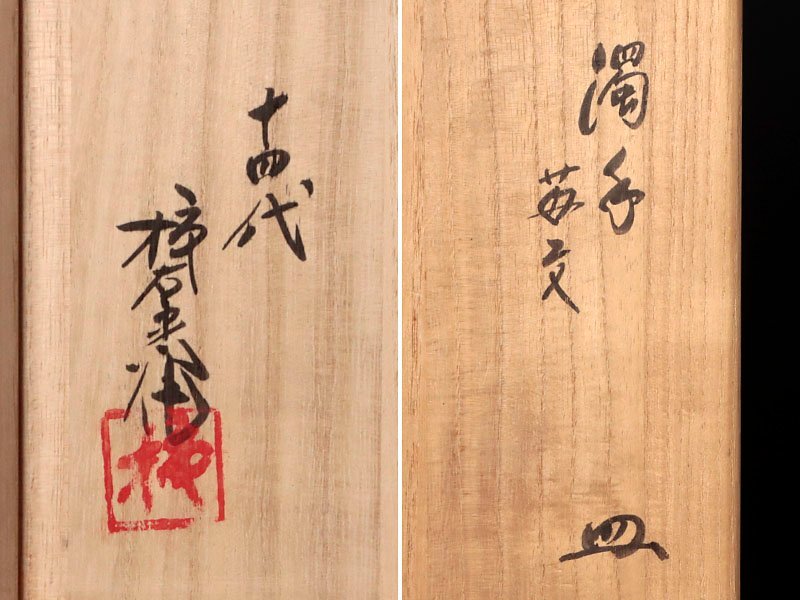 十四代
柿右衛門
柿
濁手
苺文
皿